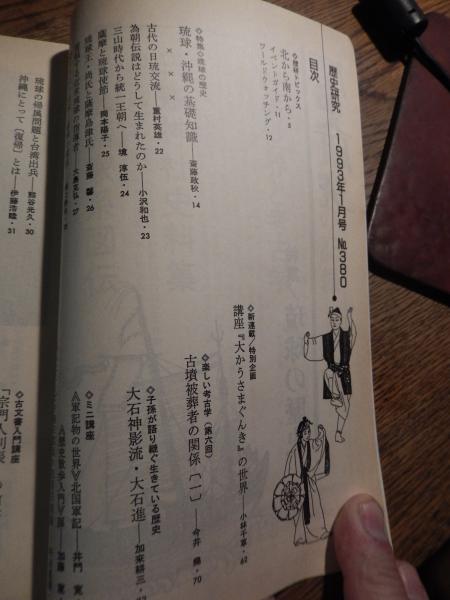 歴史研究　1993年1月号　№380
目次
◇歴研トピックス
北から南から・8
イベントガイド・11
ワールドウォッチング・12
◇特集◇琉球の歴史
琉球・沖縄の基礎知識――斎藤政秋・14
×　×　×
古代の日琉交流――重村英雄・22
為朝伝説はどうして生まれたのか――小沢和也・23
三山時代から統一王朝へ――境 淳伍・24
薩摩と琉球使節――岡本陽子・25
琉球王・尚氏と薩摩島津氏――斎藤 馨・26
大島克弘・27
琉球の帰属問題と台湾出兵――熊谷光久・30
沖縄にとって〔復帰〕とは――伊藤浩睦・31
◇新連載／特別企画
講座『大かうさまぐんき』の世界――小林千草・62
◇楽しい考古学（第六回）
古墳被葬者の関係〔一〕――今井 堯・70
◇子孫が語り継ぐ生きている歴史
大石神影流・大石進――加来耕三・
◇ミニ講座
《軍記物の世界》北国軍記――井門 寛
《歴史散歩入門》
◇古文書入門講座
「宗門人別帳